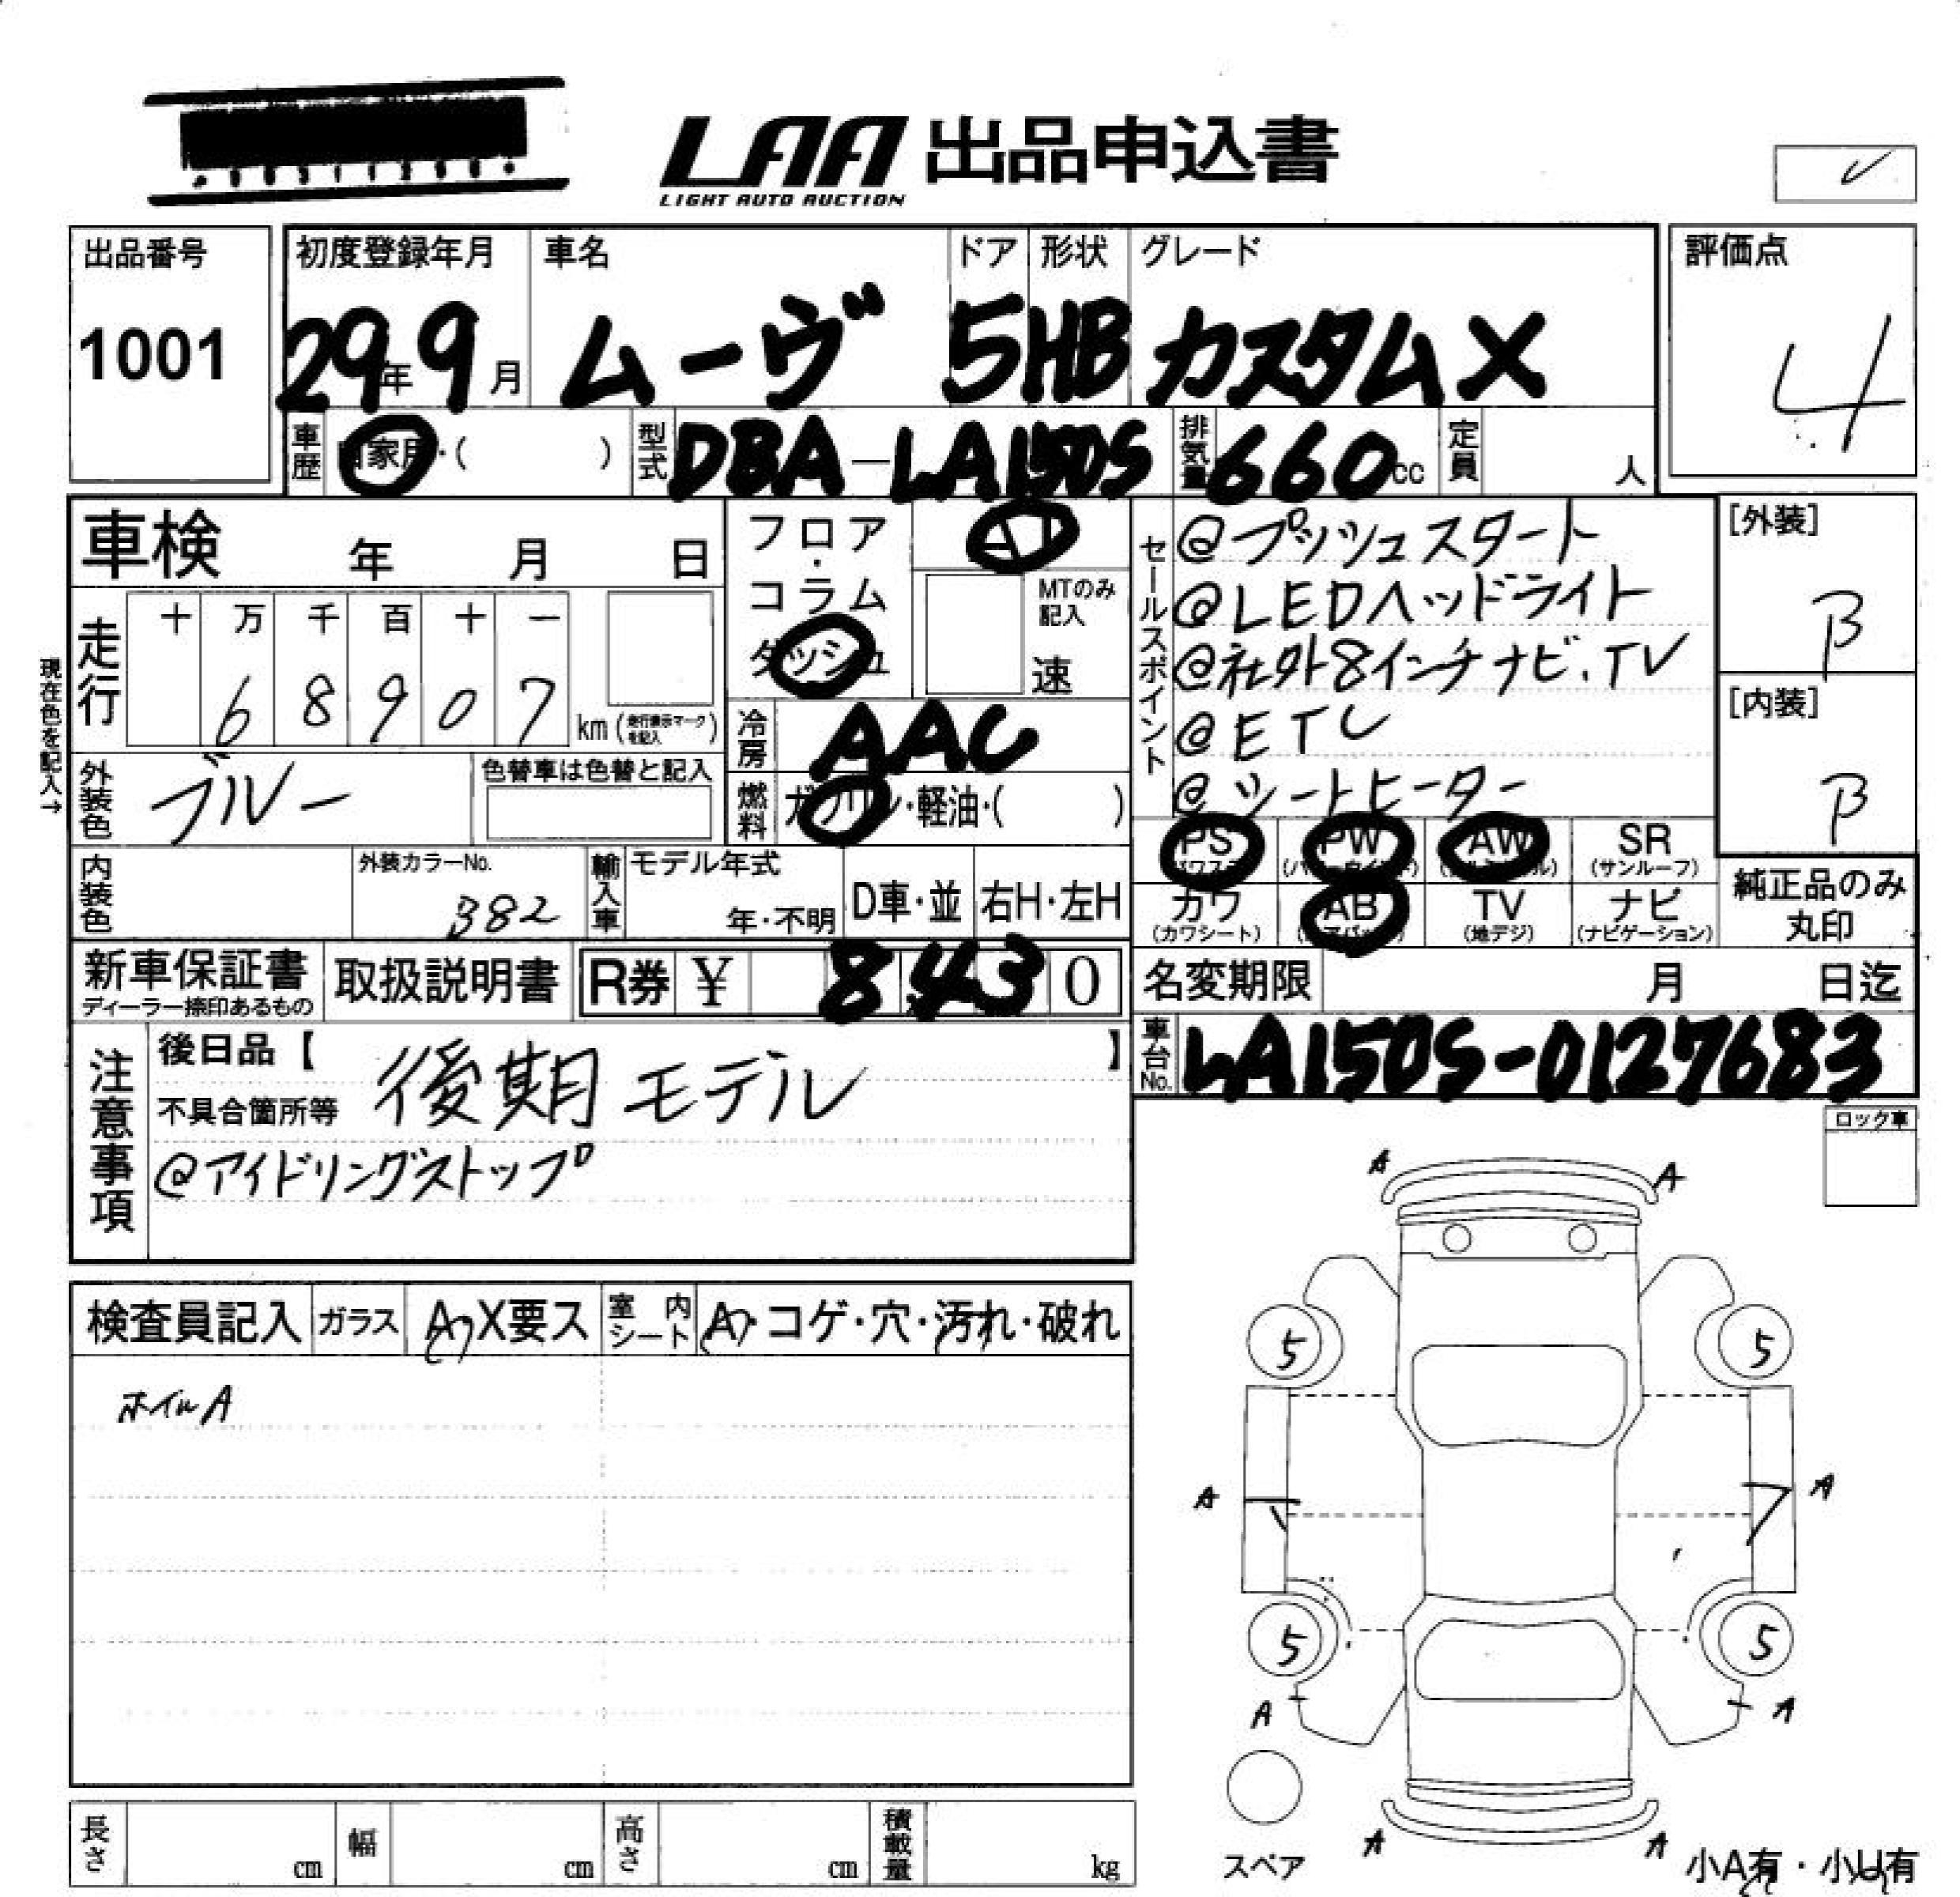 LAA 出品申込書
LIGHT AUTO AUCTION
出品番号 初度登録年月 車名 ドア 形状 グレード 評価点
1001 29年 9月 ムーヴ 5 HB カスタムX 4
車歴 自家用・( ) 型式 DBA-LA150S 排気量 660cc 定員 人
車検 年 月 日
フロア・コラム ダッシュ
AT
MTのみ記入
速
セールスポイント
@プッシュスタート
@LEDヘッドライト
@社外8インチナビ、TV
@ETC
@シートヒーター
[外装]
B
[内装]
B
現在色を記入→
走行 十 万 千 百 十 一
6 8 9 0 7 km (走行表示マークを記入)
冷房 AAC
外装色 ブルー 色替車は色替と記入
燃料 ガソリン・軽油・( )
PS (パワステ) PW (パワーウインド) AW (アルミホイル) SR (サンルーフ)
カワ (カワシート) AB (エアバッグ) TV (地デジ) ナビ (ナビゲーション)
純正品のみ丸印
内装色 外装カラーNo. 382 輸入車 モデル年式 年・不明 D車・並 右H・左H
新車保証書 ディーラー捺印あるもの 取扱説明書 R券 ¥ 8,430
名変期限 月 日迄
車台No. LA150S-0127683
注意事項
後日品【 】
不具合箇所等 後期モデル
@アイドリングストップ
ロック車
検査員記入 ガラス A・X要ス 室内シート A・コゲ・穴・汚れ・破れ
ホイルA
A A
5 5
A A
5 5
A A
スペア
A A
小A有・小U有
長さ cm 幅 cm 高さ cm 積載量 kg